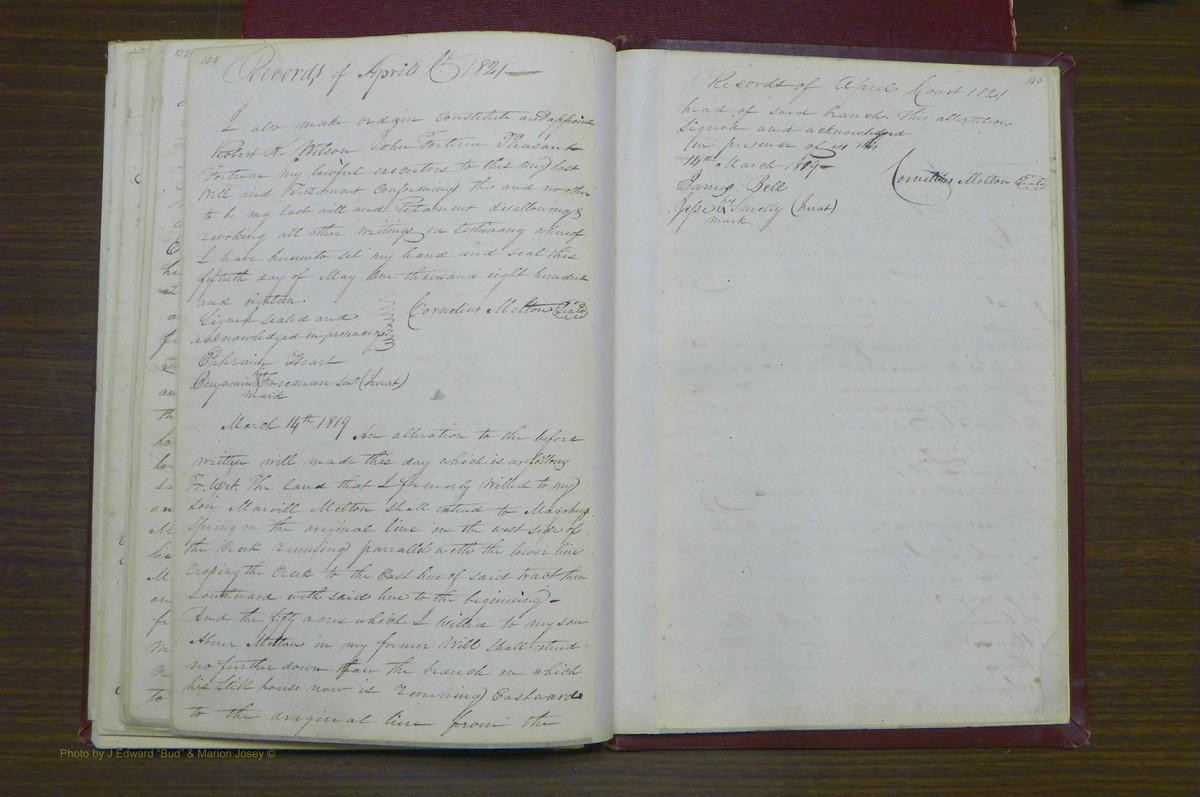 154
Records of April Ct 1821
I also make ordain constitute and appoint
Robert N. Wilson John Fortune Pleasant
Fortune my lawful executors to this my last
will and Testament Confirming this and no other
to be my last will and Testament disallowing &
revoking all other writings in testimony whereof
I have hereunto set my hand and seal this
fiftenth day of May One thousand eight hundred
and eighteen.
Signed sealed and
acknowledged in presence
Cornelius Melton Seal
Ephraim Heart
Benjamin his Foreman Senr (Jurat)
mark
March 14th 1819 An alteration to the before
written will made this day which is as follows
To. Wit. The land that I formerly Willed to my
son Marvill Melton shall extend to
Spring on the original line on the west side of
the Creek running parralel with the lower line
Croping the Creek to the East line of said tract then
Southward with said line to the beginning -
And the fifty acres which I willed to my son
Abner Melton in my former Will shall extend
no further down than the branch on which
his Still house now is running Eastwards
to the original line from the
155
Records of April Court 1821
head of said branch. This alteration
Signed and acknowledged
In presence of us this
14th March 1819
Cornelius Melton Seal
James Bell
Jesse his Smelly (Jurat)
mark
152
Photo by J Edward "Bud" & Marion Josey ©